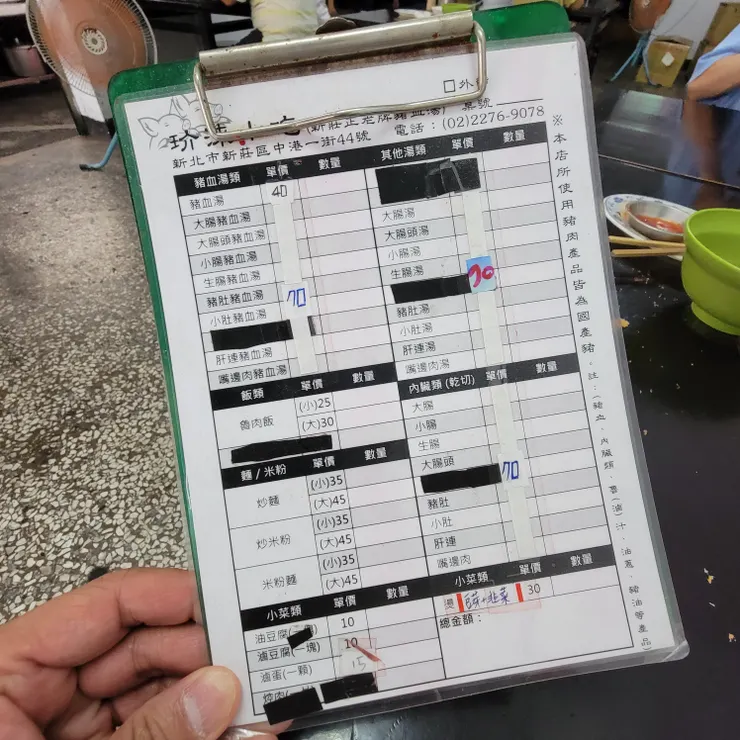 □外
珍珠小吃(新莊正老牌豬血湯) 桌號
新北市新莊區中港一街44號 電話：(02)2276-9078
豬血湯類 單價 數量
豬血湯 40
大腸豬血湯
大腸頭豬血湯
小腸豬血湯
生腸豬血湯
豬肚豬血湯 70
小肚豬血湯
肝連豬血湯
嘴邊肉豬血湯
飯類 單價 數量
魯肉飯 (小)25
(大)30
麵/米粉 單價 數量
炒麵 (小)35
(大)45
炒米粉 (小)35
(大)45
米粉麵 (小)35
(大)45
小菜類 單價 數量
油豆腐 10
滷豆腐(一塊) 10
滷蛋(一顆) 15
其他湯類 單價 數量
大腸湯
大腸頭湯
小腸湯
生腸湯 70
豬肚湯
小肚湯
肝連湯
嘴邊肉湯
內臟類(乾切) 單價 數量
大腸
小腸
生腸
大腸頭 70
豬肚
小肚
肝連
嘴邊肉
小菜類 單價 數量
燙 豆芽+韭菜 30
總金額：
※本店所使用豬肉產品皆為國產豬。註：(豬血、內臟類、魯(滷)汁、油蔥、豬油等產品)